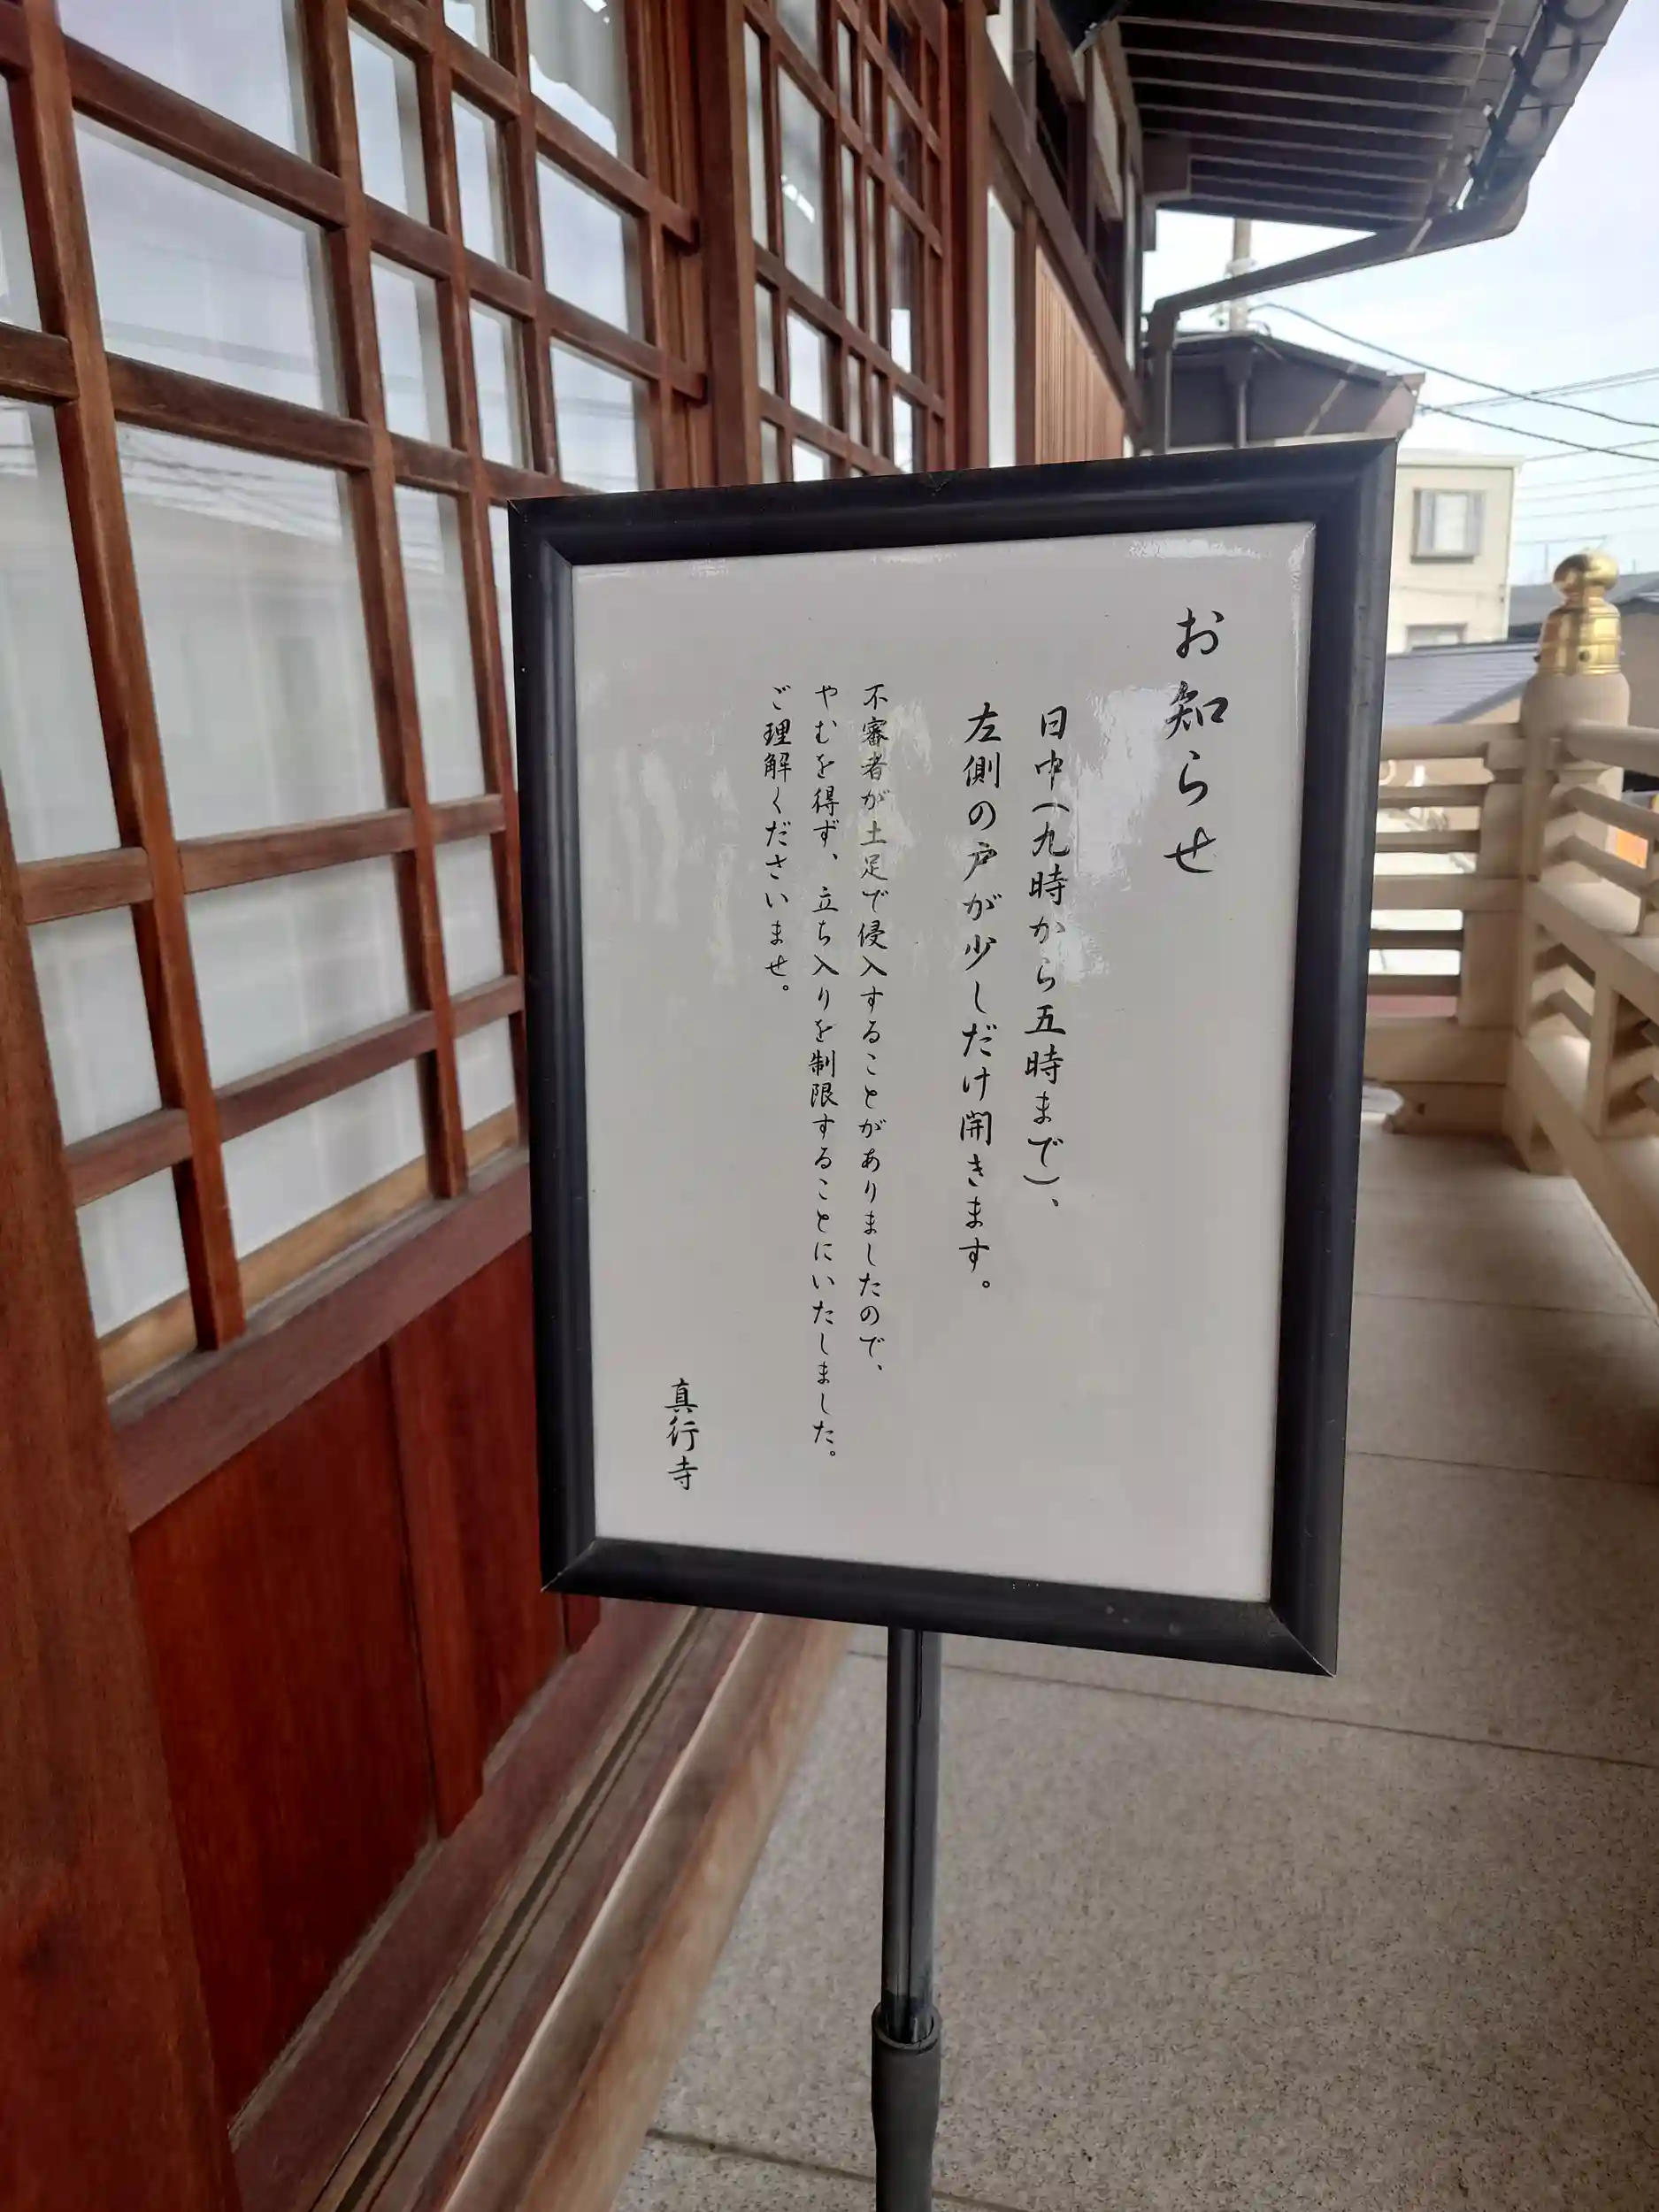 お知らせ
日中(九時から五時まで)、
左側の戸が少しだけ開きます。
不審者が土足で侵入することがありましたので、
やむを得ず、立ち入りを制限することにいたしました。
ご理解くださいませ。
真行寺